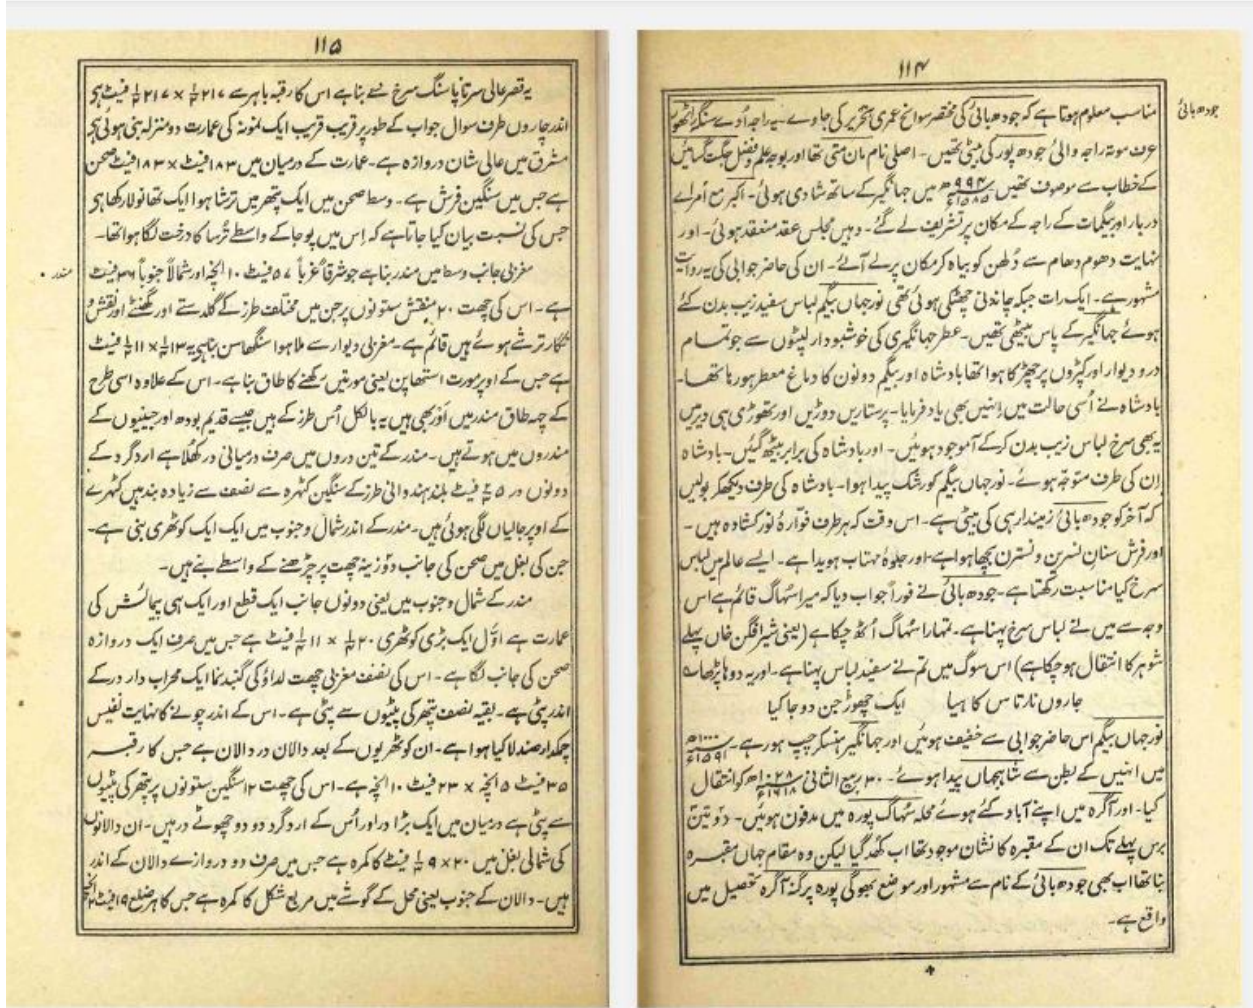 ۱۱۴
جودھ بائی
مناسب معلوم ہوتا ہے کہ جودھ بائی کی مختصر سوانح عمری تحریر کی جاوے۔ یہ راجہ اُودے سنگھ راٹھور
عرف موتہ راجہ والئ جودھ پور کی بیٹی تھیں۔ اصلی نام مان متی تھا اور بوجہ علم و فضل جگت گسائیں
کے خطاب سے موصوف تھیں ۹۹۴ھ ۱۵۸۵ء میں جہانگیر کے ساتھ شادی ہوئی۔ اکبر مع اُمرائے
دربار اور بیگمات کے راجہ کے مکان پر تشریف لے گئے۔ وہیں مجلس عقد منعقد ہوئی۔ اور
نہایت دھوم دھام سے دُلھن کو بیاہ کر مکان پر لے آئے۔ ان کی حاضر جوابی کی یہ روایت
مشہور ہے۔ ایک رات جبکہ چاندنی چھٹکی ہوئی تھی نور جہاں بیگم لباس سفید زیب بدن کئے
ہوئے جہانگیر کے پاس بیٹھی تھیں۔ عطر جہانگیری کی خوشبودار لپٹوں سے جو تمام
در و دیوار اور کپڑوں پر چھڑکا ہوا تھا بادشاہ اور بیگم دونوں کا دماغ معطر ہو رہا تھا۔
بادشاہ نے اُسی حالت میں اِنہیں بھی یاد فرمایا۔ پرستاریں دوڑیں اور تھوڑی ہی دیر میں
یہ بھی سرخ لباس زیب بدن کرکے آموجود ہوئیں۔ اور بادشاہ کی برابر بیٹھ گئیں۔ بادشاہ
اِن کی طرف متوجہ ہوئے۔ نور جہاں بیگم کو رشک پیدا ہوا۔ بادشاہ کی طرف دیکھکر بولیں
کہ آخر کو جودھ بائی زمیندار ہی کی بیٹی ہے۔ اس وقت کہ ہر طرف فوارۂ نور کشادہ ہیں ۔
اور فرش سنان نسرین و نسترن بچھا ہوا ہے۔ اور جلوۂ مہتاب ہویدا ہے۔ ایسے عالم میں لباس
سرخ کیا مناسبت رکھتا ہے۔ جودھ بائی نے فوراً جواب دیا کہ میرا سُہاگ قائم ہے اس
وجہ سے میں نے لباس سرخ پہنا ہے۔ تمہارا سُہاگ اُٹھ چکا ہے (یعنی شیر افگن خاں پہلے
شوہر کا انتقال ہوچکا ہے) اس سوگ میں تم نے سفید لباس پہنا ہے۔ اور یہ دوہا پڑھا ؎
جاروں نار تاس کا ہیا ایک چھوڑ جن دوجا کیا
نور جہاں بیگم اس حاضر جوابی سے خفیف ہوئیں اور جہانگیر ہنسکر چپ ہو رہے۔ ۱۰۰۰ھ ۱۵۹۱ء
میں انہیں کے بطن سے شاہجہاں پیدا ہوئے۔ ۳۰ ربیع الثانی ۱۰۲۸ھ ۱۶۱۸ء کو انتقال
کیا۔ اور آگرہ میں اپنے آباد کئے ہوئے محلہ سُہاگ پورہ میں مدفون ہوئیں۔ دو تین
برس پہلے تک ان کے مقبرہ کا نشان موجود تھا اب کُھد گیا لیکن وہ مقام جہاں مقبرہ
بنا تھا اب بھی جودھ بائی کے نام سے مشہور اور موضع بھوگی پورہ پرگنہ آگرہ تحصیل میں
واقع ہے۔
۱۱۵
یہ قصر عالی سرتاپا سنگ سرخ سے بنا ہے اس کا رقبہ باہر سے ۲۱۷ × ۲۱۷ فیٹ ہی
اندر چاروں طرف سوال جواب کے طور پر قریب قریب ایک نمونہ کی عمارت دو منزلہ بنی ہوئی ہی
مشرق میں عالی شان دروازہ ہے۔ عمارت کے درمیان میں ۱۸۳ فیٹ × ۱۸۳ فیٹ صحن
ہے جس میں سنگین فرش ہے۔ وسط صحن میں ایک پتھر میں ترشا ہوا ایک تھانولا رکھا ہی
جس کی نسبت بیان کیا جاتا ہے کہ اِس میں پوجا کے واسطے تُرسا کا درخت لگا ہوا تھا۔
مندر
مغربی جانب وسط میں مندر بنا ہے جو شرقاً غرباً ۵۷ فیٹ ۱۰ انچہ اور شمالاً جنوباً ۳۶ فیٹ
ہے۔ اس کی چھت ۲۰ منقش ستونوں پر جن میں مختلف طرز کے گلدستے اور گھنٹے اور نقش و
نگار ترشے ہوئے ہیں قائم ہے۔ مغربی دیوار سے ملا ہوا سنگھاسن بنا ہی یہ ۱۳ × ۱۱ فیٹ
ہے جس کے اوپر مورت استھاپن یعنی مورتیں رکھنے کا طاق بنا ہے۔ اس کے علاوہ اسی طرح
کے چھہ طاق مندر میں اَور بھی ہیں یہ بالکل اُس طرز کے ہیں جیسے قدیم بودھ اور جینیوں کے
مندروں میں ہوتے ہیں۔ مندر کے تین دروں میں صرف درمیانی در کھلا ہے اردگرد کے
دونوں در ۵ فیٹ بلند ہندوانی طرز کے سنگین کٹہرہ سے نصف سے زیادہ بند ہیں کٹہرے
کے اوپر جالیاں لگی ہوئی ہیں۔ مندر کے اندر شمال و جنوب میں ایک ایک کوٹھری بنی ہے۔
جن کی بغل میں صحن کی جانب دو زینہ چھت پر چڑھنے کے واسطے بنے ہیں۔
مندر کے شمال و جنوب میں یعنی دونوں جانب ایک قطع اور ایک ہی پیمائش کی
عمارت ہے اوّل ایک بڑی کوٹھری ۲۰ × ۱۱ فیٹ ہے جس میں صرف ایک دروازہ
صحن کی جانب لگا ہے۔ اس کی نصف مغربی چھت لداؤ کی گنبد نما ایک محراب دار در کے
اندر پٹی ہے۔ بقیہ نصف پتھر کی پٹیوں سے پٹی ہے۔ اس کے اندر چونے کا نہایت نفیس
چمکدار صندلا کیا ہوا ہے۔ ان کوٹھریوں کے بعد دالان در دالان ہے جس کا رقبہ
۳۵ فیٹ ۵ انچہ × ۲۳ فیٹ ۱۰ انچہ ہے۔ اس کی چھت ۱۲ سنگین ستونوں پر پتھر کی پٹیوں
سے پٹی ہے درمیان میں ایک بڑا در اور اُس کے اردگرد دو دو چھوٹے در ہیں۔ ان دالانوں
کی شمالی بغل میں ۲۰ × ۹ فیٹ کا کمرہ ہے جس میں صرف دو دروازے دالان کے اندر
ہیں۔ دالان کے جنوب یعنی محل کے گوشے میں مربع شکل کا کمرہ ہے جس کا ہر ضلع ۱۹ فیٹ